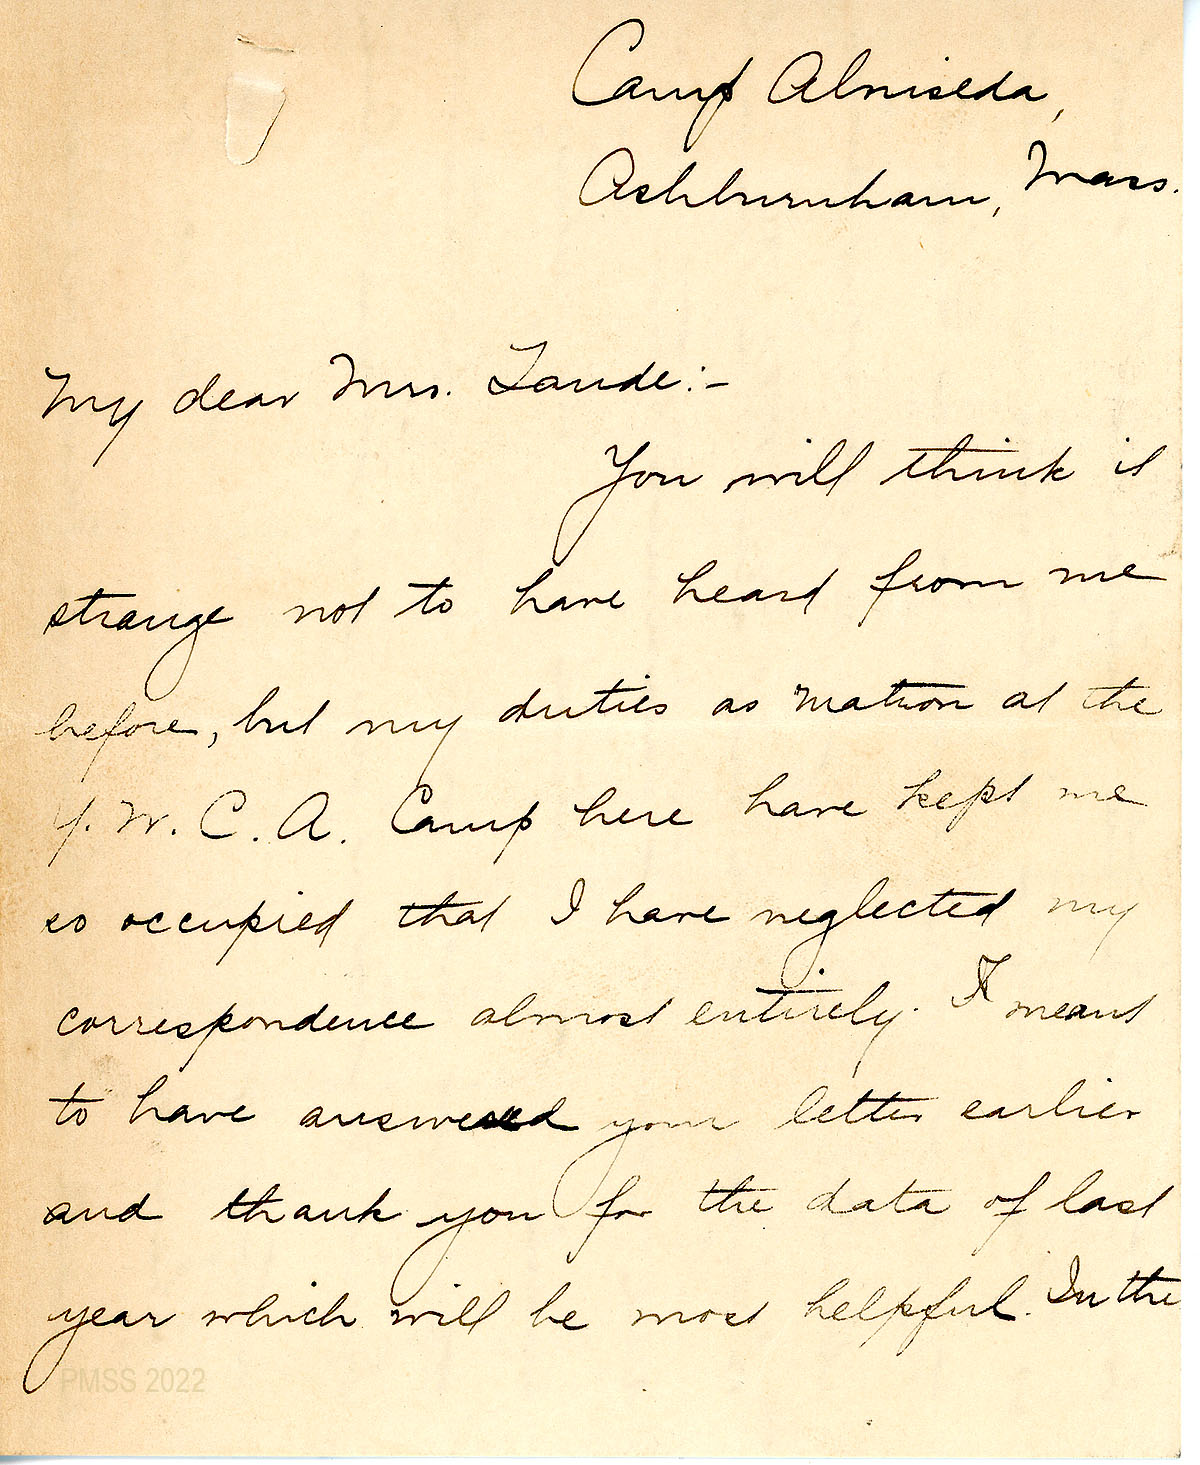 Camp Almiseda,
Ashburnham, Mass.
My dear Mrs. Zande:-
You will think it
strange not to have heard from me
before, but my duties as matron at the
Y. W. C. A. Camp here have kept me
so occupied that I have neglected my
correspondence almost entirely. I meant
to have answered your letter earlier
and thank you for the data of last
year which will be most helpful. In the
PMSS 2022